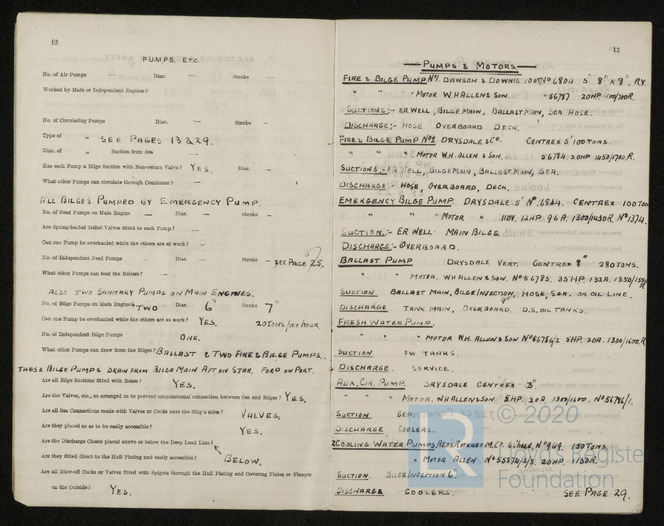 12
PUMPS, ETC.
No. of Air Pumps — Diar. — Stroke —
Worked by Main or Independent Engines? —
No. of Circulating Pumps — Diar. — Stroke —
Type of " SEE PAGES 13 & 29.
Diar. of " — Suction from Sea —
Has each Pump a Bilge Suction with Non-return Valve? YES. Diar. —
What other Pumps can circulate through Condenser? —
ALL BILGES PUMPED BY EMERGENCY PUMP.
No. of Feed Pumps on Main Engine — Diar. — Stroke —
Are Spring-loaded Relief Valves fitted to each Pump? —
Can one Pump be overhauled while the others are at work? —
No. of Independent Feed Pumps — Diar. — Stroke — SEE PAGE 25.
What other Pumps can feed the Boilers? —
ALSO TWO SANITARY PUMPS ON MAIN ENGINES.
No. of Bilge Pumps on Main Engines TWO Diar. 6" Stroke 7"
Can one Pump be overhauled while the others are at work? YES. 20 TONS/PER HOUR
No. of Independent Bilge Pumps ONE.
What other Pumps can draw from the Bilges? BALLAST & TWO FIRE & BILGE PUMPS.
THESE BILGE PUMPS DRAW FROM BILGE MAIN AFT ON STAR. FOR'D ON PORT.
Are all Bilge Suctions fitted with Roses? YES.
Are the Valves, etc., so arranged as to prevent unintentional connection between Sea and Bilges? YES.
Are all Sea Connections made with Valves or Cocks next the Ship's sides? VALVES.
Are they placed so as to be easily accessible? YES.
Are the Discharge Chests placed above or below the Deep Load Line?
Are they fitted direct to the Hull Plating and easily accessible? BELOW.
Are all Blow-off Cocks or Valves fitted with Spigots through the Hull Plating and Covering Plates or Flanges
on the Outside? YES.
13
PUMPS & MOTORS
FIRE & BILGE PUMP Nº1. DAWSON & DOWNIE 100T Nº 6804 5" 8" x 8" R.V.
" " " MOTOR W.H ALLEN & SON. 56787 20HP.
SUCTIONS:- ER. WELL, BILGE MAIN, BALLAST MAIN, SEA HOSE.
DISCHARGE:- HOSE OVERBOARD DECK.
FIRE & BILGE PUMP Nº2 DRYSDALE & Cº. CENTREX 5" 100 TONS.
" " " MOTOR W.H. ALLEN & SON. 56784. 20HP.
SUCTIONS:- ER WELL, BILGE MAIN, BALLAST MAIN, SEA.
DISCHARGE:- HOSE, OVERBOARD, DECK.
EMERGENCY BILGE PUMP. DRYSDALE 5" Nº 6844. CENTREX 100 TON
" " " MOTOR 110V. 12HP. 96A. 1300/1450R. Nº 1374.
SUCTION:- ER WELL MAIN BILGE
DISCHARGE:- OVERBOARD.
BALLAST PUMP DRYSDALE VERT. CENTREX 8" 280 TONS.
" " MOTOR. W.H ALLEN & SON. Nº 56785. 35HP. 132A.
SUCTION BALLAST MAIN, BILGE INJECTION, HOSE, SEA. OR OIL LINE.
DISCHARGE TANK MAIN, OVERBOARD. D.S. OIL TANKS.
FRESH WATER PUMP.
" " MOTOR W.H. ALLEN & SON Nº 56786/2 5HP. 20A. 1300/1600R.
SUCTION FW TANKS.
DISCHARGE. SERVICE.
AUX. CIR. PUMP. DRYSDALE CENTREX
" " MOTOR. W.H ALLEN & SON. 5HP. 20A. 1300/1600. Nº 56786/1.
SUCTION SEA
DISCHARGE COOLERS.
2 COOLING WATER PUMPS Nº 949. 150 TONS.
" MOTOR ALLEN 20HP. 1150R.
SUCTION. BILGE INJECTION
DISCHARGE COOLERS. SEE PAGE 29.
© 2020
LR
Lloyd's Register
Foundation